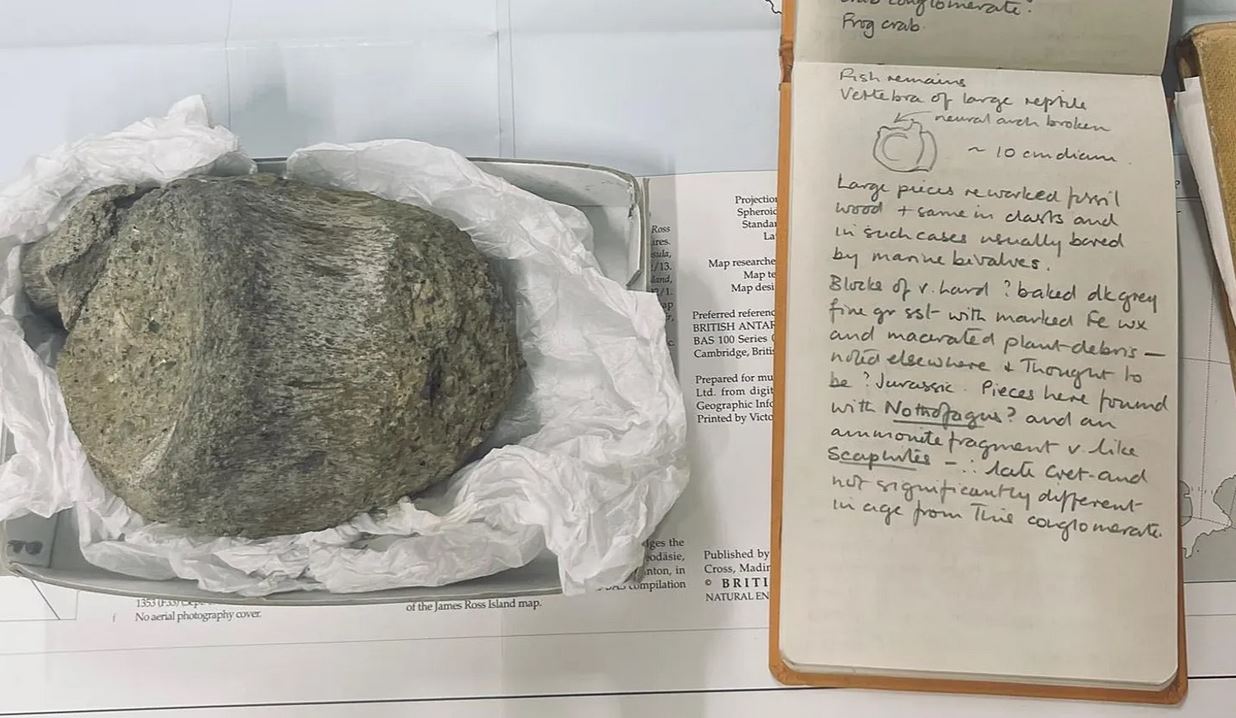 crab conglomerate.
Frog crab.
Fish remains
Vertebra of large reptile
neural arch broken
~ 10 cm diam.
Large pieces reworked fossil
wood + same in clasts and
in such cases usually bored
by marine bivalves.
Blocks of v. hard ? baked dk grey
fine gr sst with marked Fe wx
and macerated plant debris —
noted elsewhere & thought to
be ? Jurassic. Pieces here found
with Nothofagus? and an
ammonite fragment v. like
Scaphites — ∴ late Cret and
not significantly different
in age from this conglomerate.
Ross
Projection
Spheroid
Standa
La
Map researche
Map te
Map desi
Preferred referenc
BRITISH ANTAR
BAS 100 Series
Cambridge, Britis
Prepared for mu
Ltd. from digit
Geographic Info
Printed by Victo
Published by
Cross, Madin
© BRITI
NATURAL EN
compilation
No aerial photography cover.
of the James Ross Island map.